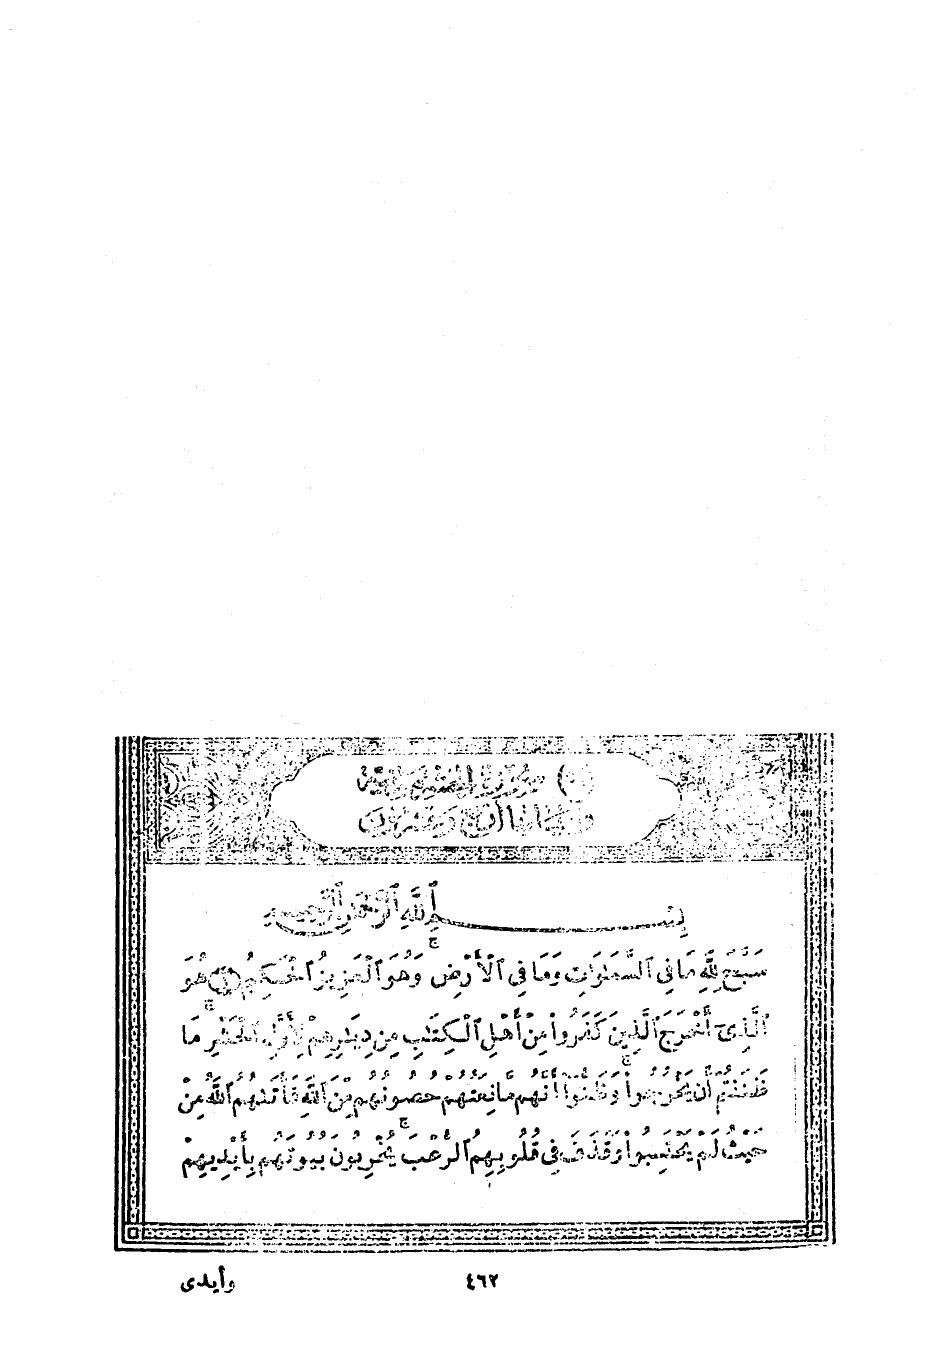 سورة الحشر مدنية
وآياتها أربع وعشرون
بِسْمِ ٱللَّهِ ٱلرَّحْمَٰنِ ٱلرَّحِيمِ
سَبَّحَ لِلَّهِ مَا فِى ٱلسَّمَٰوَٰتِ وَمَا فِى ٱلْأَرْضِ ۖ وَهُوَ ٱلْعَزِيزُ ٱلْحَكِيمُ ﴿١﴾ هُوَ
ٱلَّذِىٓ أَخْرَجَ ٱلَّذِينَ كَفَرُوا۟ مِنْ أَهْلِ ٱلْكِتَٰبِ مِن دِيَٰرِهِمْ لِأَوَّلِ ٱلْحَشْرِ ۚ مَا
ظَنَنتُمْ أَن يَخْرُجُوا۟ ۖ وَظَنُّوٓا۟ أَنَّهُم مَّانِعَتُهُمْ حُصُونُهُم مِّنَ ٱللَّهِ فَأَتَىٰهُمُ ٱللَّهُ مِنْ
حَيْثُ لَمْ يَحْتَسِبُوا۟ ۖ وَقَذَفَ فِى قُلُوبِهِمُ ٱلرُّعْبَ ۚ يُخْرِبُونَ بُيُوتَهُم بِأَيْدِيهِمْ
٤٦٢
وأيدى